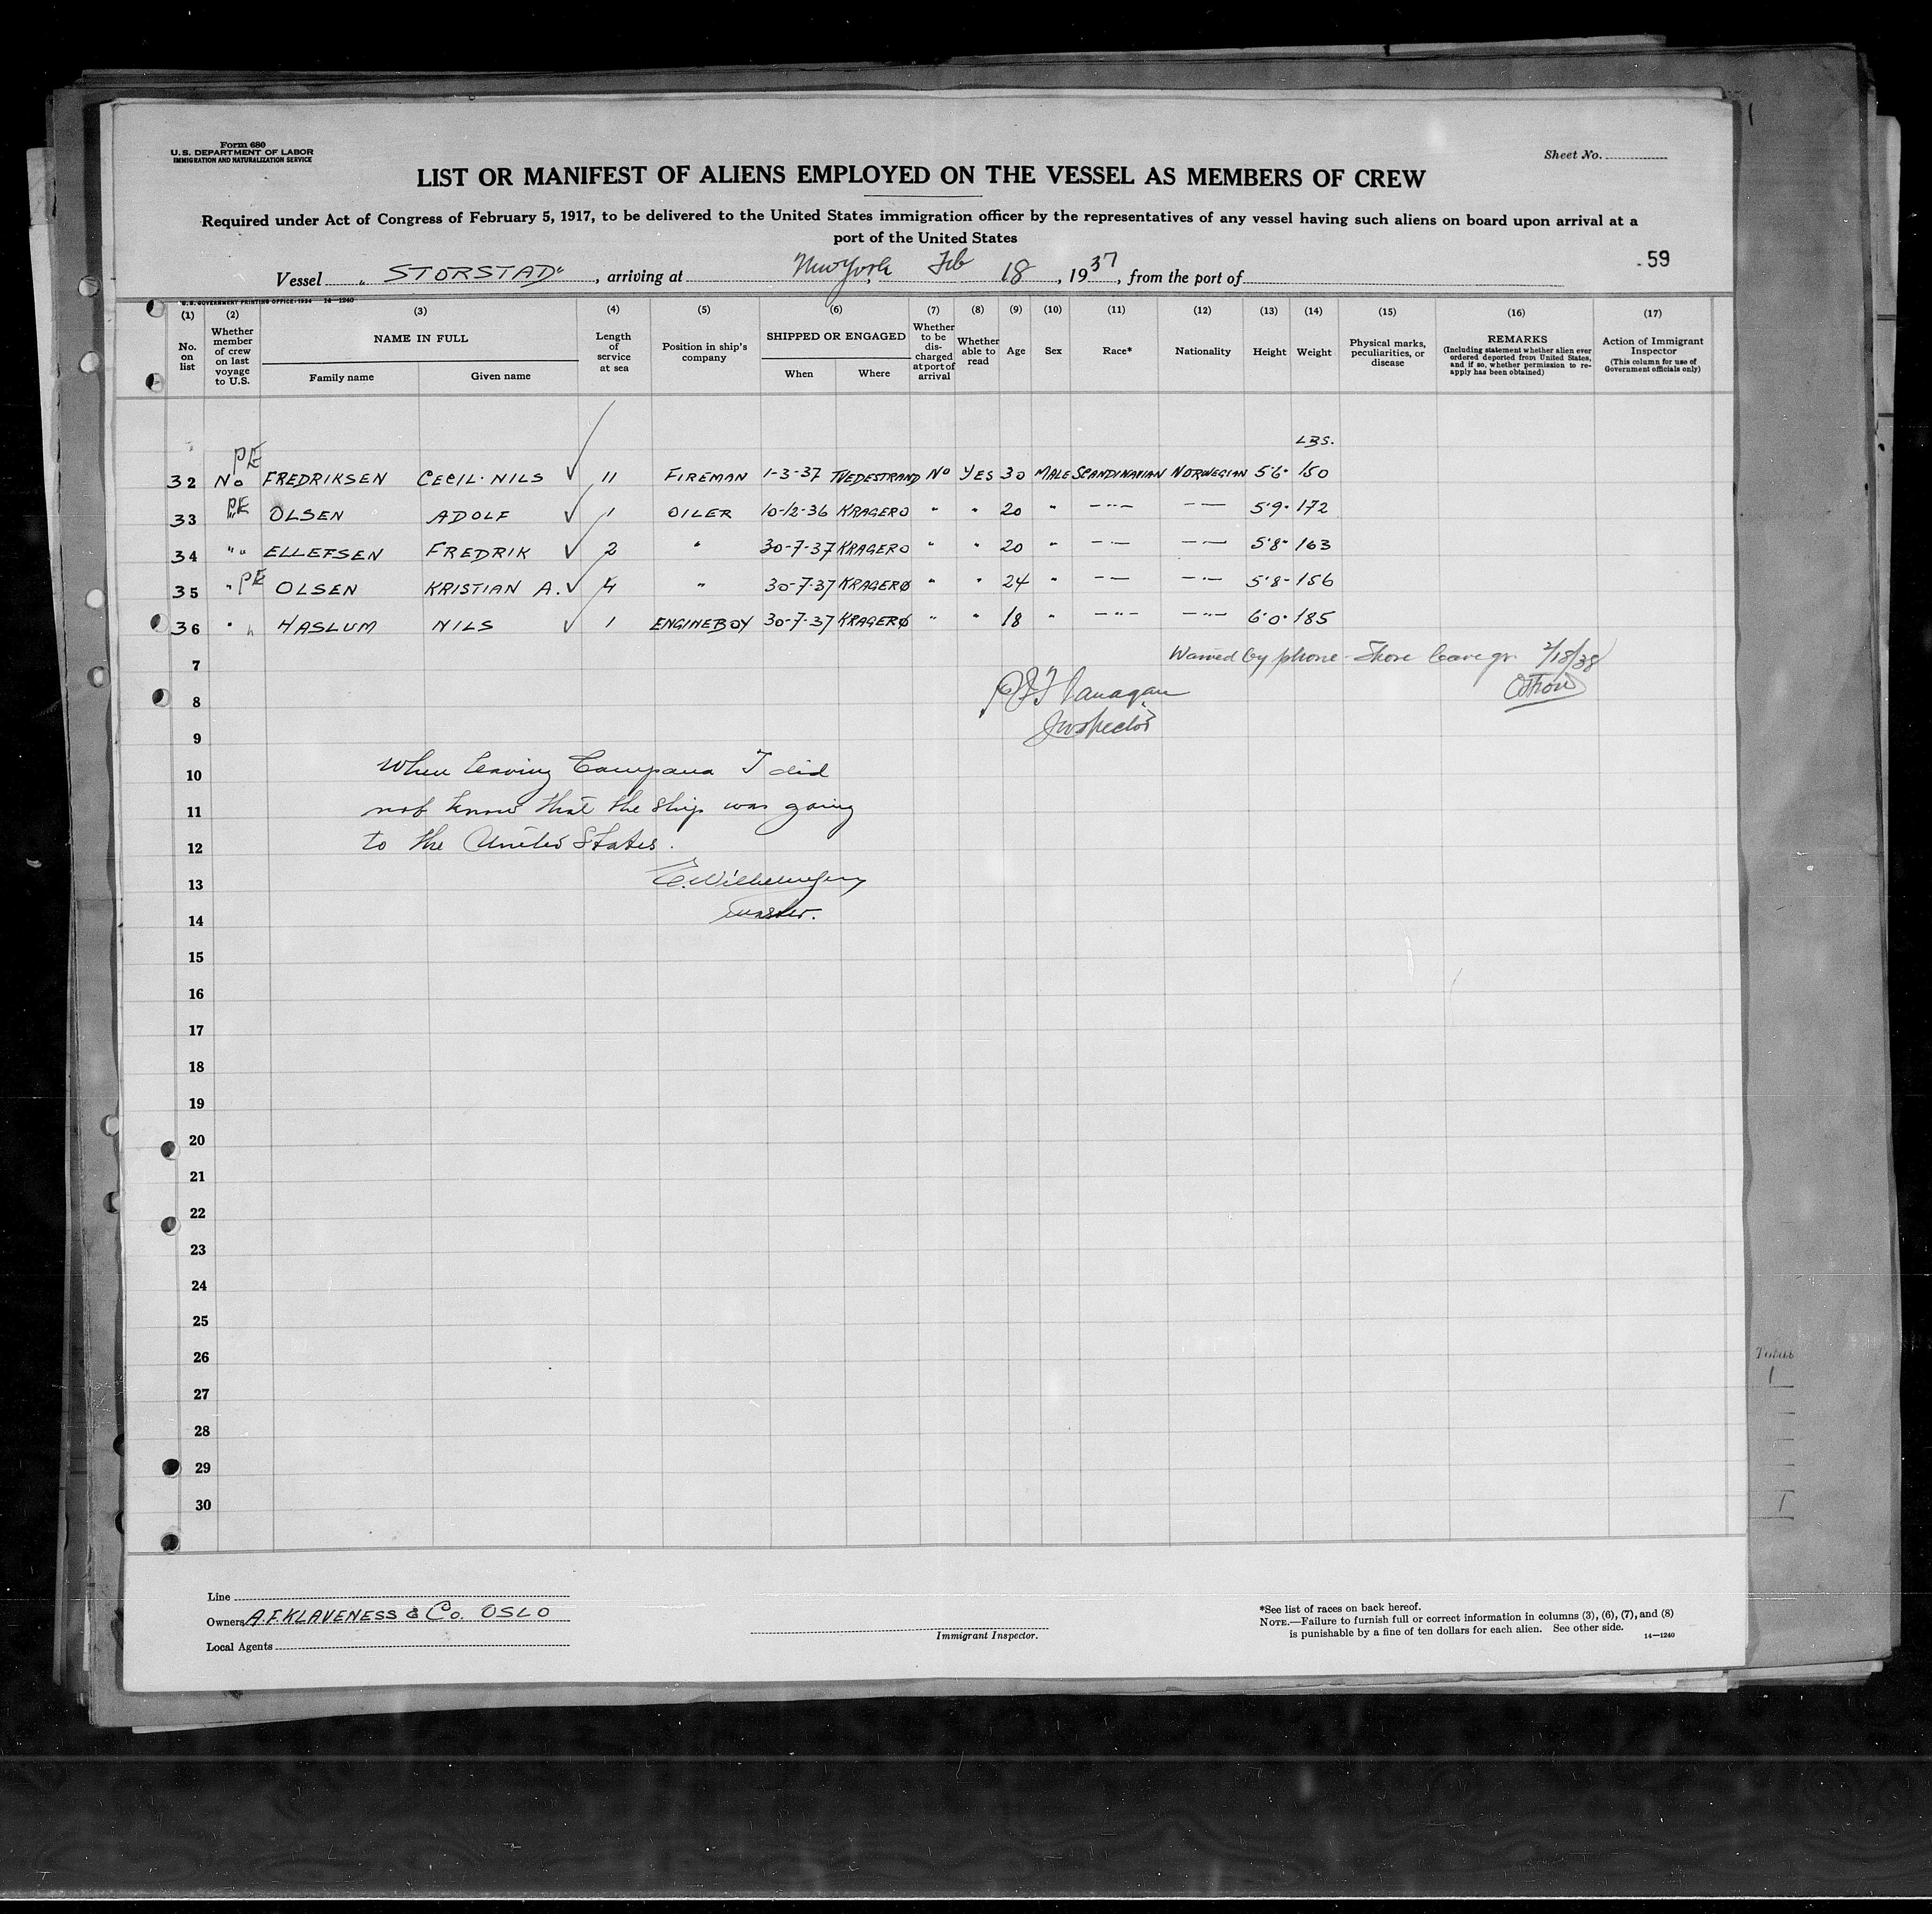 Form 680
U.S. DEPARTMENT OF LABOR
IMMIGRATION AND NATURALIZATION SERVICE
Sheet No.
LIST OR MANIFEST OF ALIENS EMPLOYED ON THE VESSEL AS MEMBERS OF CREW
Required under Act of Congress of February 5, 1917, to be delivered to the United States immigration officer by the representatives of any vessel having such aliens on board upon arrival at a
port of the United States
Vessel "STORSTAD", arriving at New York, Feb 18, 1937, from the port of
59
U.S. GOVERNMENT PRINTING OFFICE: 1934 14—1240
(1) (2) (3) (4) (5) (6) (7) (8) (9) (10) (11) (12) (13) (14) (15) (16) (17)
No. on list
Whether member of crew on last voyage to U.S.
NAME IN FULL
Family name Given name
Length of service at sea
Position in ship's company
SHIPPED OR ENGAGED
When Where
Whether to be discharged at port of arrival
Whether able to read
Age
Sex
Race*
Nationality
Height
Weight
Physical marks, peculiarities, or disease
REMARKS
(Including statement whether alien ever ordered deported from United States, and if so, whether permission to reapply has been obtained)
Action of Immigrant Inspector
(This column for use of Government officials only)
LBS.
32 No PE FREDRIKSEN CECIL. NILS ✓ 11 FIREMAN 1-3-37 TVEDESTRAND No YES 30 MALE SCANDINAVIAN NORWEGIAN 5'6" 150
33 " PE OLSEN ADOLF ✓ 1 OILER 10-12-36 KRAGERO " " 20 " —"— —"— 5'9" 172
34 " " ELLEFSEN FREDRIK ✓ 2 " 30-7-37 KRAGERO " " 20 " —"— —"— 5'8" 163
35 " PE OLSEN KRISTIAN A. ✓ 4 " 30-7-37 KRAGERØ " " 24 " —"— —"— 5'8" 156
36 " " HASLUM NILS ✓ 1 ENGINEBOY 30-7-37 KRAGERØ " " 18 " —"— —"— 6'0" 185
7 Warned by phone - Shore leave gr. 2/18/38
8 Flanagan
9 Inspector
10 When leaving Campana I did
11 not know that the ship was going
12 to the United States.
13 E. Wilhelmsen
14 master.
15
16
17
18
19
20
21
22
23
24
25
26
27
28
29
30
Total
Line
Owners A.F. KLAVENESS & Co. OSLO
Local Agents
Immigrant Inspector.
*See list of races on back hereof.
NOTE.—Failure to furnish full or correct information in columns (3), (6), (7), and (8)
is punishable by a fine of ten dollars for each alien. See other side.
14—1240